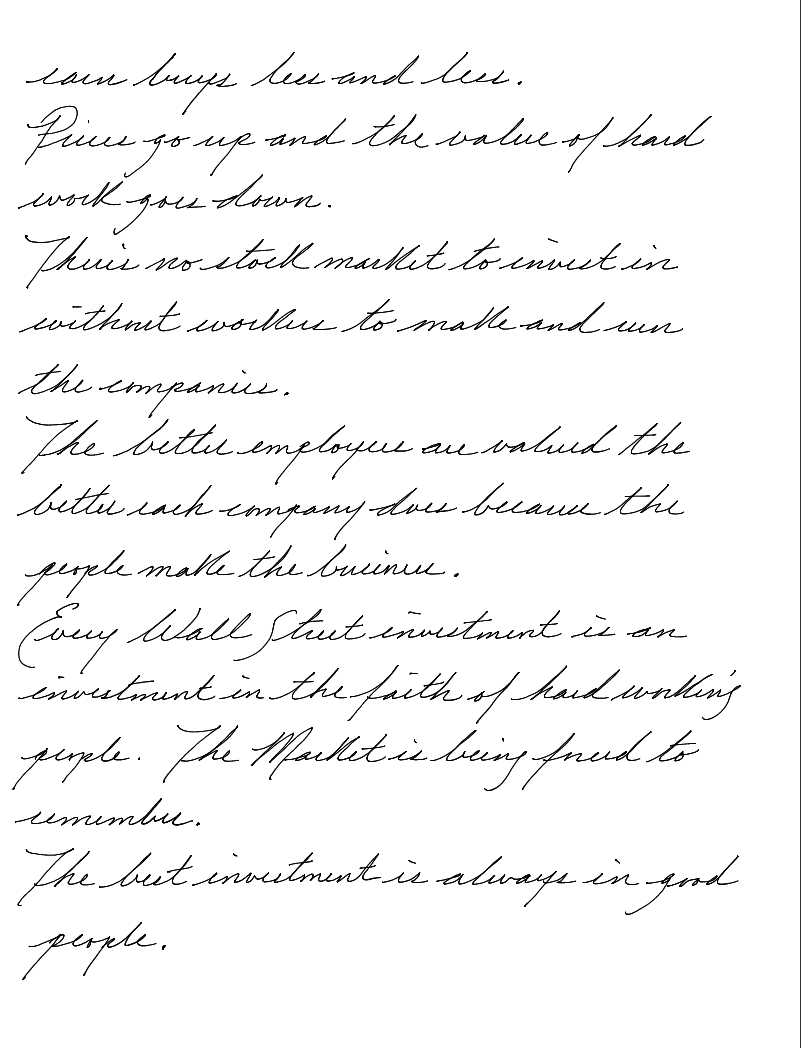 earn buys less and less.
Prices go up and the value of hard
work goes down.
Theirs no stock market to invest in
without workers to make and run
the companies.
The better employees are valued the
better each company does because the
people make the business.
Every Wall Street investment is an
investment in the faith of hard working
people. The Market is being forced to
remember.
The best investment is always in good
people.